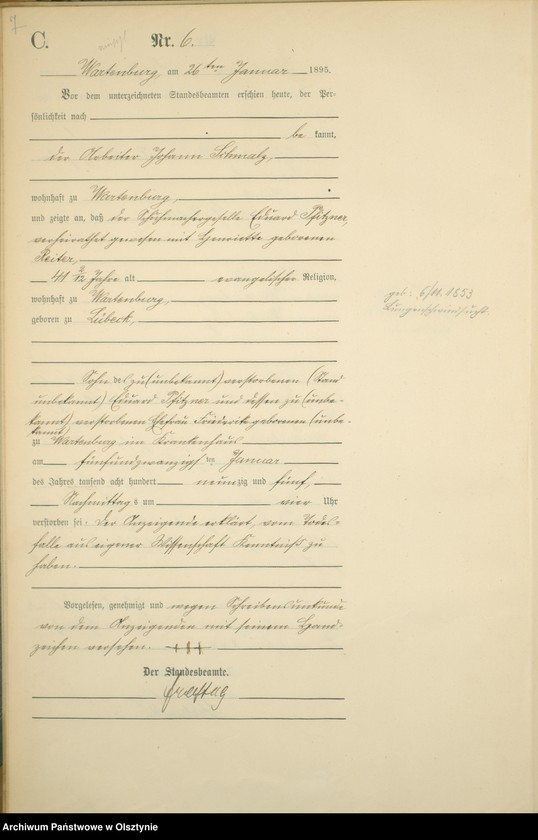 7
C.
Nr. 6.
Wartenburg, am 26ten Januar 1895.
Vor dem unterzeichneten Standesbeamten erschien heute, der Per-
sönlichkeit nach
be kannt,
der Arbeiter Johann Schmalz,
wohnhaft zu Wartenburg,
und zeigte an, daß der Schuhmachergeselle Eduard Pfitzner,
verheirathet gewesen mit Henriette geborenen
Reiter,
41 2/12 Jahre alt evangelischer Religion,
wohnhaft zu Wartenburg,
geboren zu Lübeck,
Sohn des zu (unbekannt) verstorbenen (Stand
unbekannt) Eduard Pfitzner und dessen zu (unbe-
kannt) verstorbenen Ehefrau Friederike geborenen (unbe-
kannt)
zu Wartenburg im Krankenhaus
am fünfundzwanzigsten Januar
des Jahres tausend acht hundert neunzig und fünf,
Nachmittags um vier Uhr
verstorben sei. Der Anzeigende erklärt, vom Todes-
falle aus eigener Wissenschaft Kenntniß zu
haben.
Vorgelesen, genehmigt und wegen Schreibensunkunde
von dem Anzeigenden mit seinem Hand-
zeichen versehen. +++
Der Standesbeamte.
Freytag
geb: 6/11. 1853
Lungenschwindsucht
Archiwum Państwowe w Olsztynie